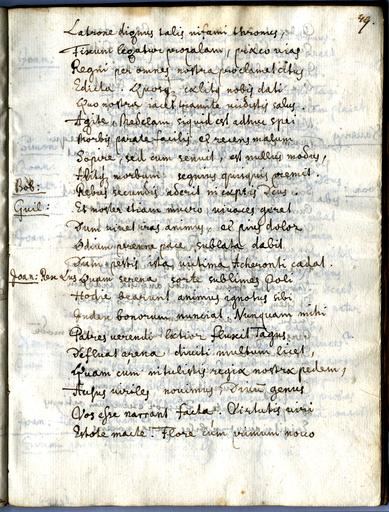 49.
Latrone dignus talis infami thronus,
Fixum legatur propalam, præco vias
Regni per omnes nostra proclamet citus
Edicta. Quoque cælitus nobis dati
Quo nostra jacet tramite nudetis salus.
Agite, medelam siquid est adhuc spei
Morbis parate facilis et recens malum
Sopire, sed cum senuit, est nullus modus,
morbum: segnius quicquid premit.
Bob: Rebus secundis aderit incæptis Deus.
Guil: Et noster etiam mucro vivaces geret
Dum vincet iras animus, et pius dolor
Odium perenne pace sublata dabit
Dum pestis ista victima Acheronti cadat.
Joan: Rex Lus Quam serena sorte sublimes Poli
Hodie bearunt animus ignotus sibi
Inde bonorum nunciat. Nunquam mihi
Patres verendi lætior fluxit Tagus.
Defluat arena diviti multum licet,
Quam cum intulistis regia nostra pedem,
Ausus viriles novimus, Divum genus
Vos esse narrant facta. Virtutis viri
Estote macte. Flore cum primum novo